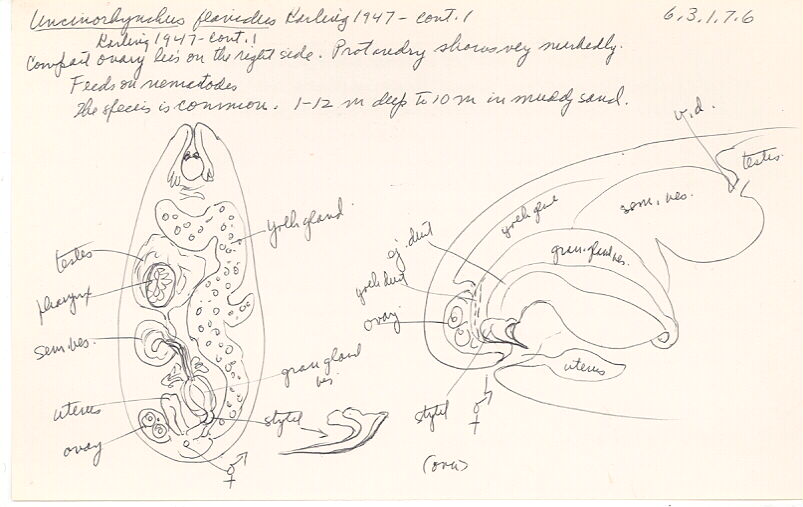 Uncinorhynchus flavidus Karling 1947 - cont. 1
6.3.1.7.6
Karling 1947 - cont. 1
Compact ovary lies on the right side. Protandry shows very markedly.
Feeds on nematodes
The species is common. 1-12 m deep to 10 m in muddy sand.
v.d.
testis
sem. ves.
yolk gland
gran. gland ves.
ej. duct
yolk duct
ovary
uterus
stylet
♂
♀
(over)
yolk gland
testes
pharynx
sem. ves.
gran gland
ves.
uterus
stylet
ovary
♂
♀